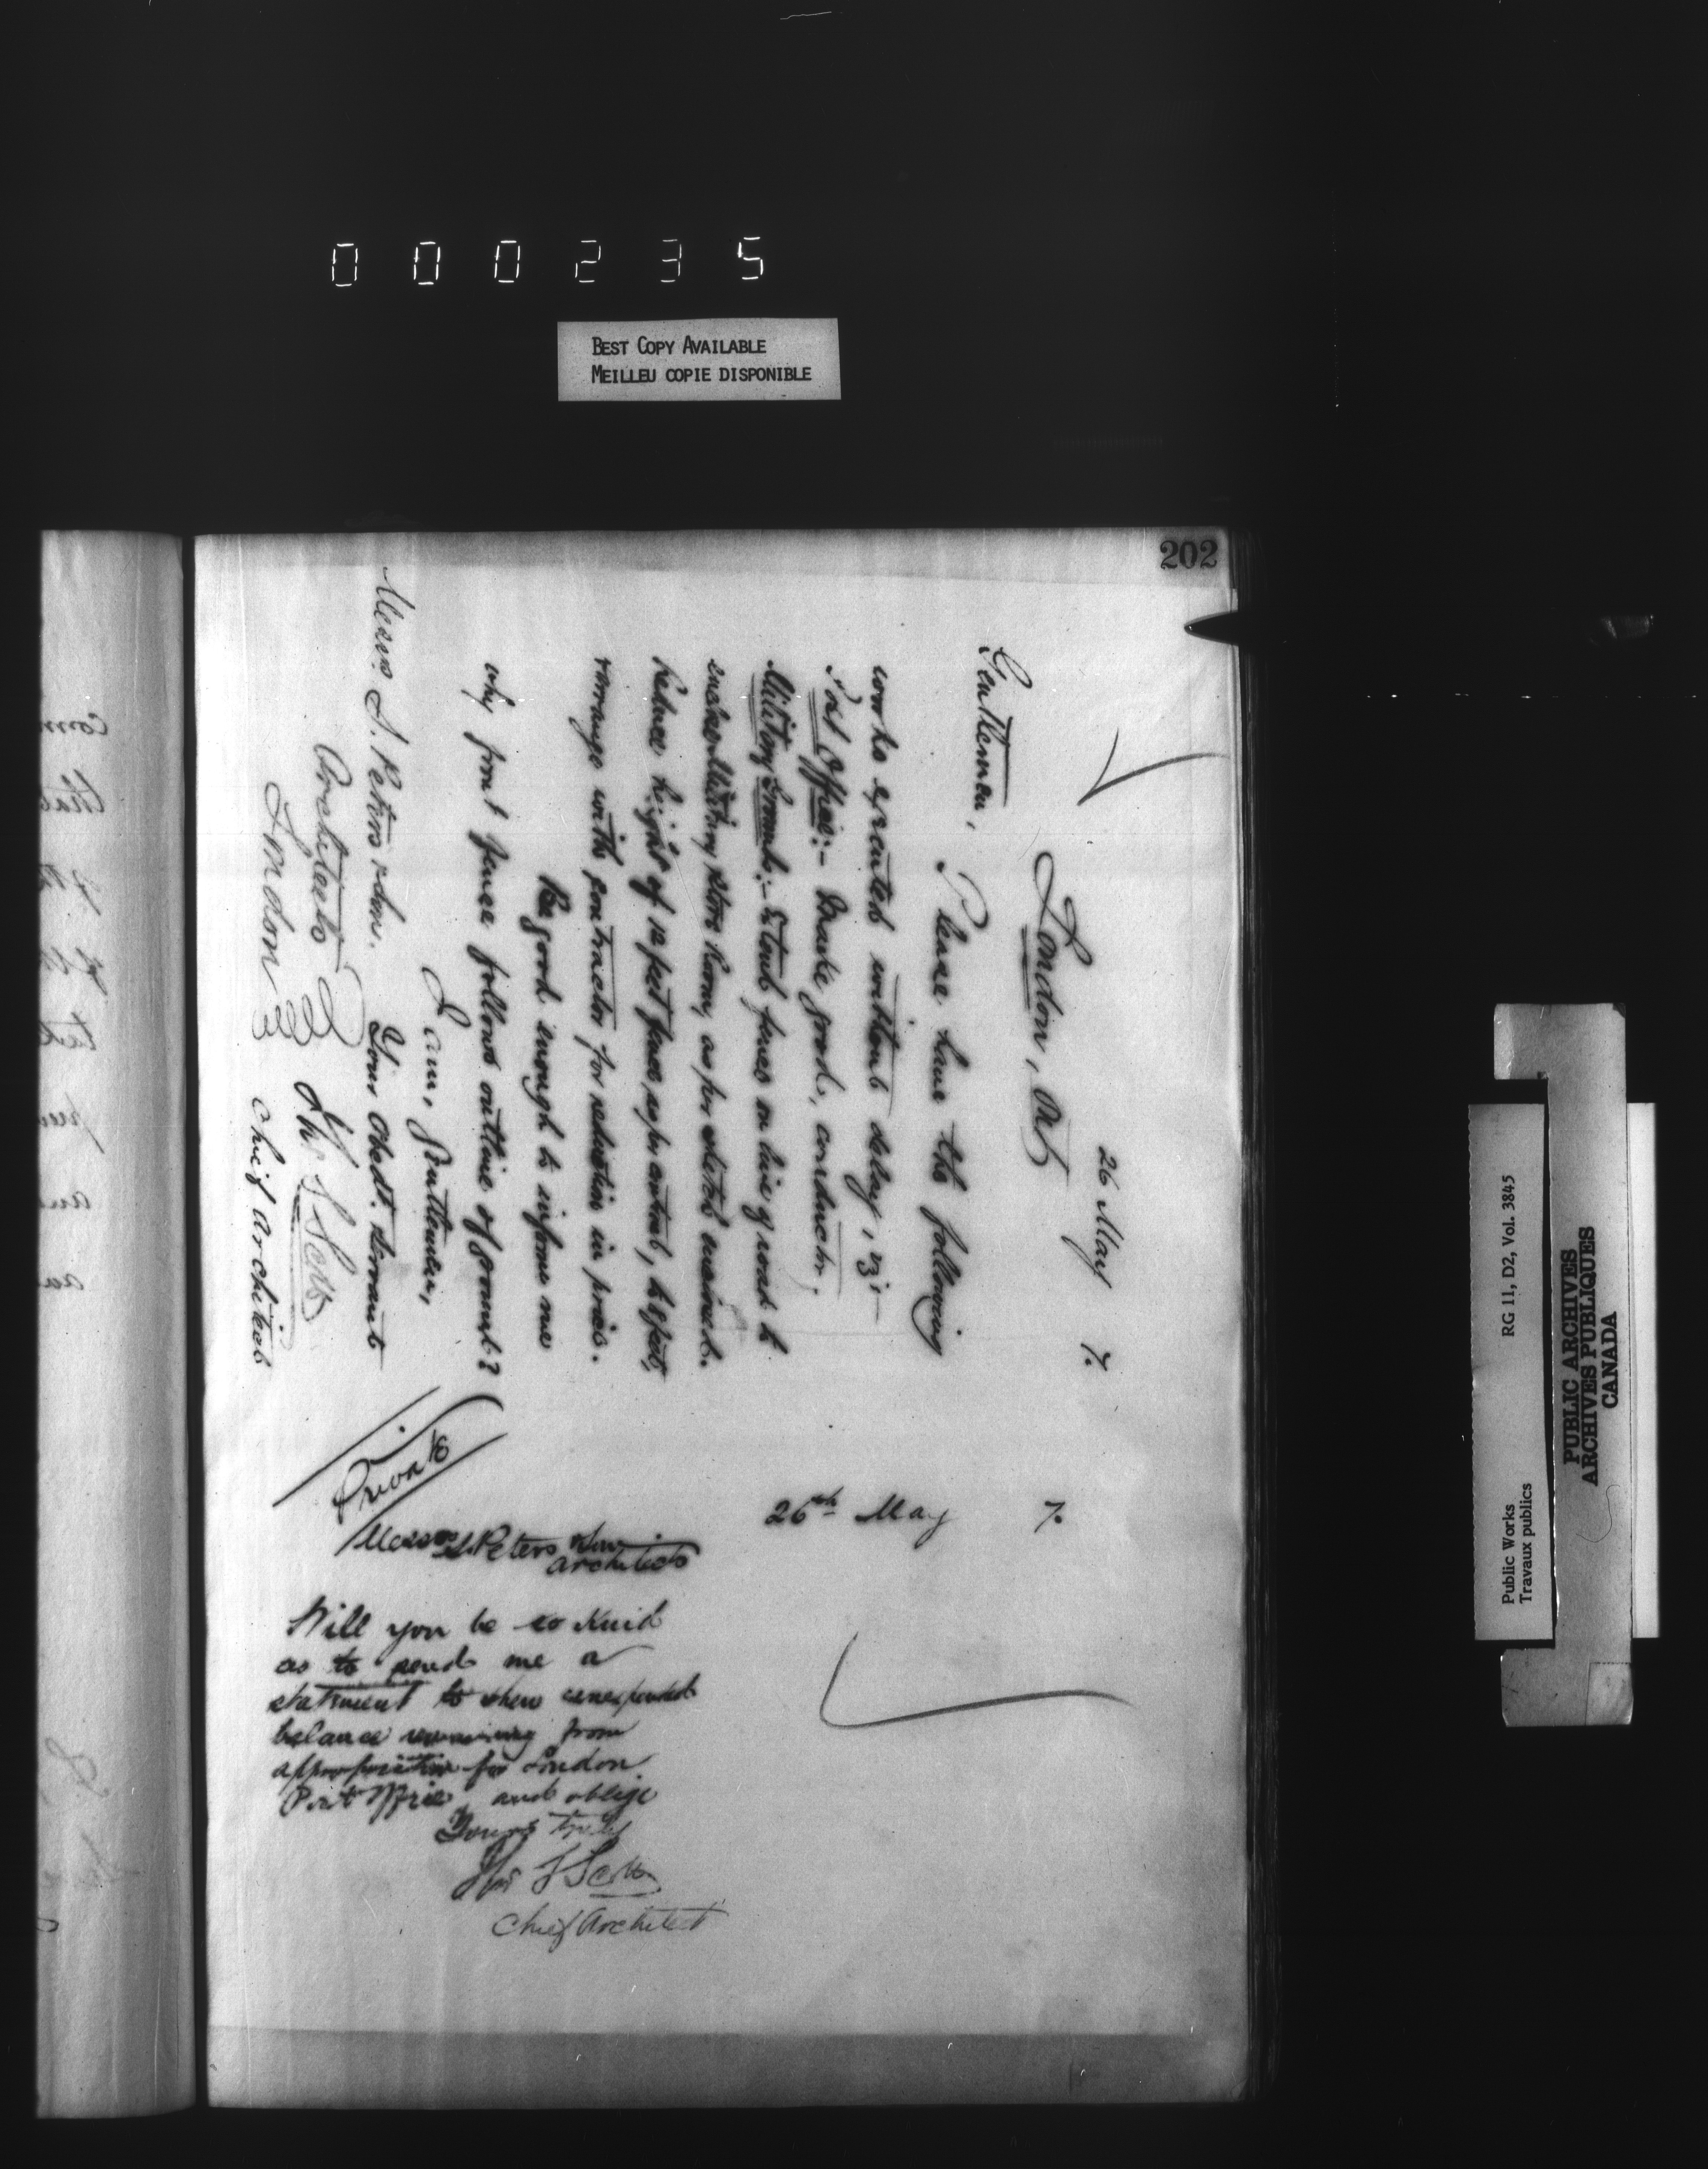 000235
BEST COPY AVAILABLE
MEILLEU COPIE DISPONIBLE
202
26 May 7.
London, Ont
Gentlemen,
Please have the following
works executed without delay, viz:—
Post Office:— Brake grads, conductor.
Military Grounds:— fence on line of road to
Military Store Room, as per sketch enclosed.
Reduce height of 12 feet fence, as per contract, to 8 feet,
rearrange with contractor for reduction in price.
Be good enough to inform me
why front fence follows outline of ground?
I am, Gentlemen,
Your Obedt. Servant
Thos S Scott
Chief Architect
Messrs. S. Peters & Son.
Architects
London
Private
26th May 7.
Messrs S. Peters & Son
Architects
Will you be so kind
as to send me a
statement to shew unexpended
balance remaining from
appropriation for London
Post Office and oblige
Yours truly
Thos S Scott
Chief Architect
RG 11, D2, Vol. 3845
Public Works
Travaux publics
PUBLIC ARCHIVES
ARCHIVES PUBLIQUES
CANADA